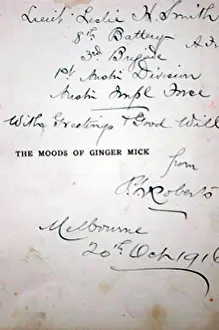 Lieut Leslie H Smith
8th Battery
3rd Brigade
1st Austn Division
Austn Impl Force
With Greetings & Good Will
THE MOODS OF GINGER MICK
from
Roberts
Melbourne
20th Oct 1916